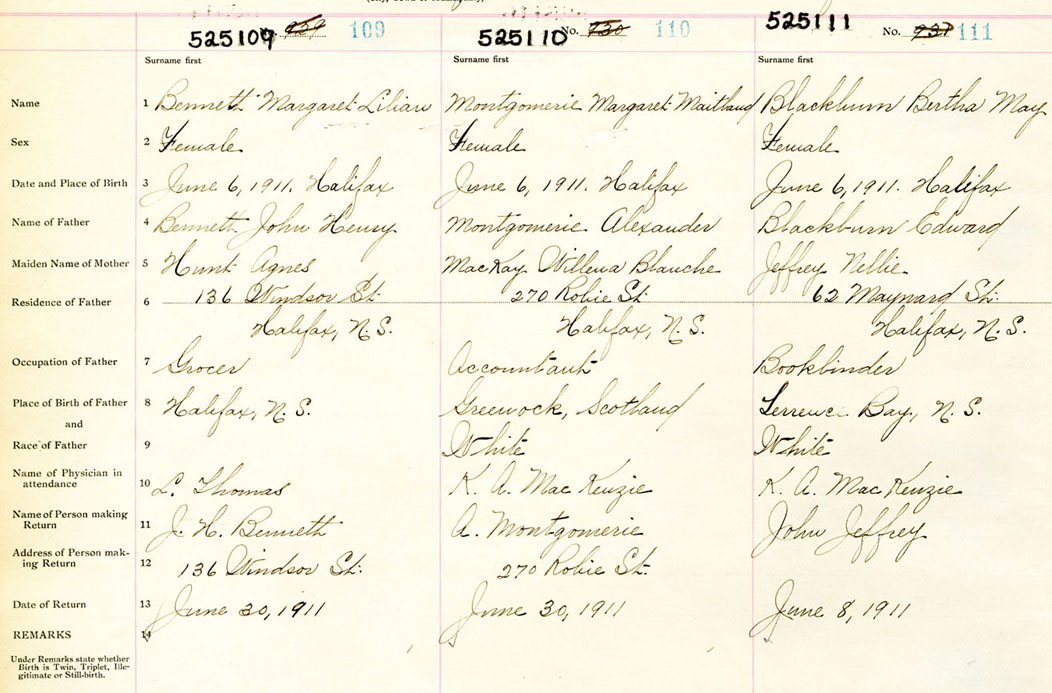 525109 No. 109 525110 No. 730 110 525111 No. 731 111
Surname first Surname first Surname first
Name 1 Bennett Margaret Lilian Montgomerie Margaret Maitland Blackburn Bertha May
Sex 2 Female Female Female
Date and Place of Birth 3 June 6, 1911. Halifax June 6, 1911. Halifax June 6, 1911. Halifax
Name of Father 4 Bennett John Henry Montgomerie Alexander Blackburn Edward
Maiden Name of Mother 5 Hunt Agnes MacKay Willena Blanche Jeffrey Nellie
Residence of Father 6 136 Windsor St. 270 Robie St. 62 Maynard St.
Halifax, N.S. Halifax, N.S. Halifax, N.S.
Occupation of Father 7 Grocer Accountant Bookbinder
Place of Birth of Father 8 Halifax, N.S. Greenock, Scotland Terrence Bay, N.S.
and
Race of Father 9 White White
Name of Physician in
attendance 10 L. Thomas K. A. MacKenzie K. A. MacKenzie
Name of Person making
Return 11 J. H. Bennett A. Montgomerie John Jeffrey
Address of Person mak-
ing Return 12 136 Windsor St. 270 Robie St.
Date of Return 13 June 30, 1911 June 30, 1911 June 8, 1911
REMARKS 14
Under Remarks state whether
Birth is Twin, Triplet, Ille-
gitimate or Still-birth.